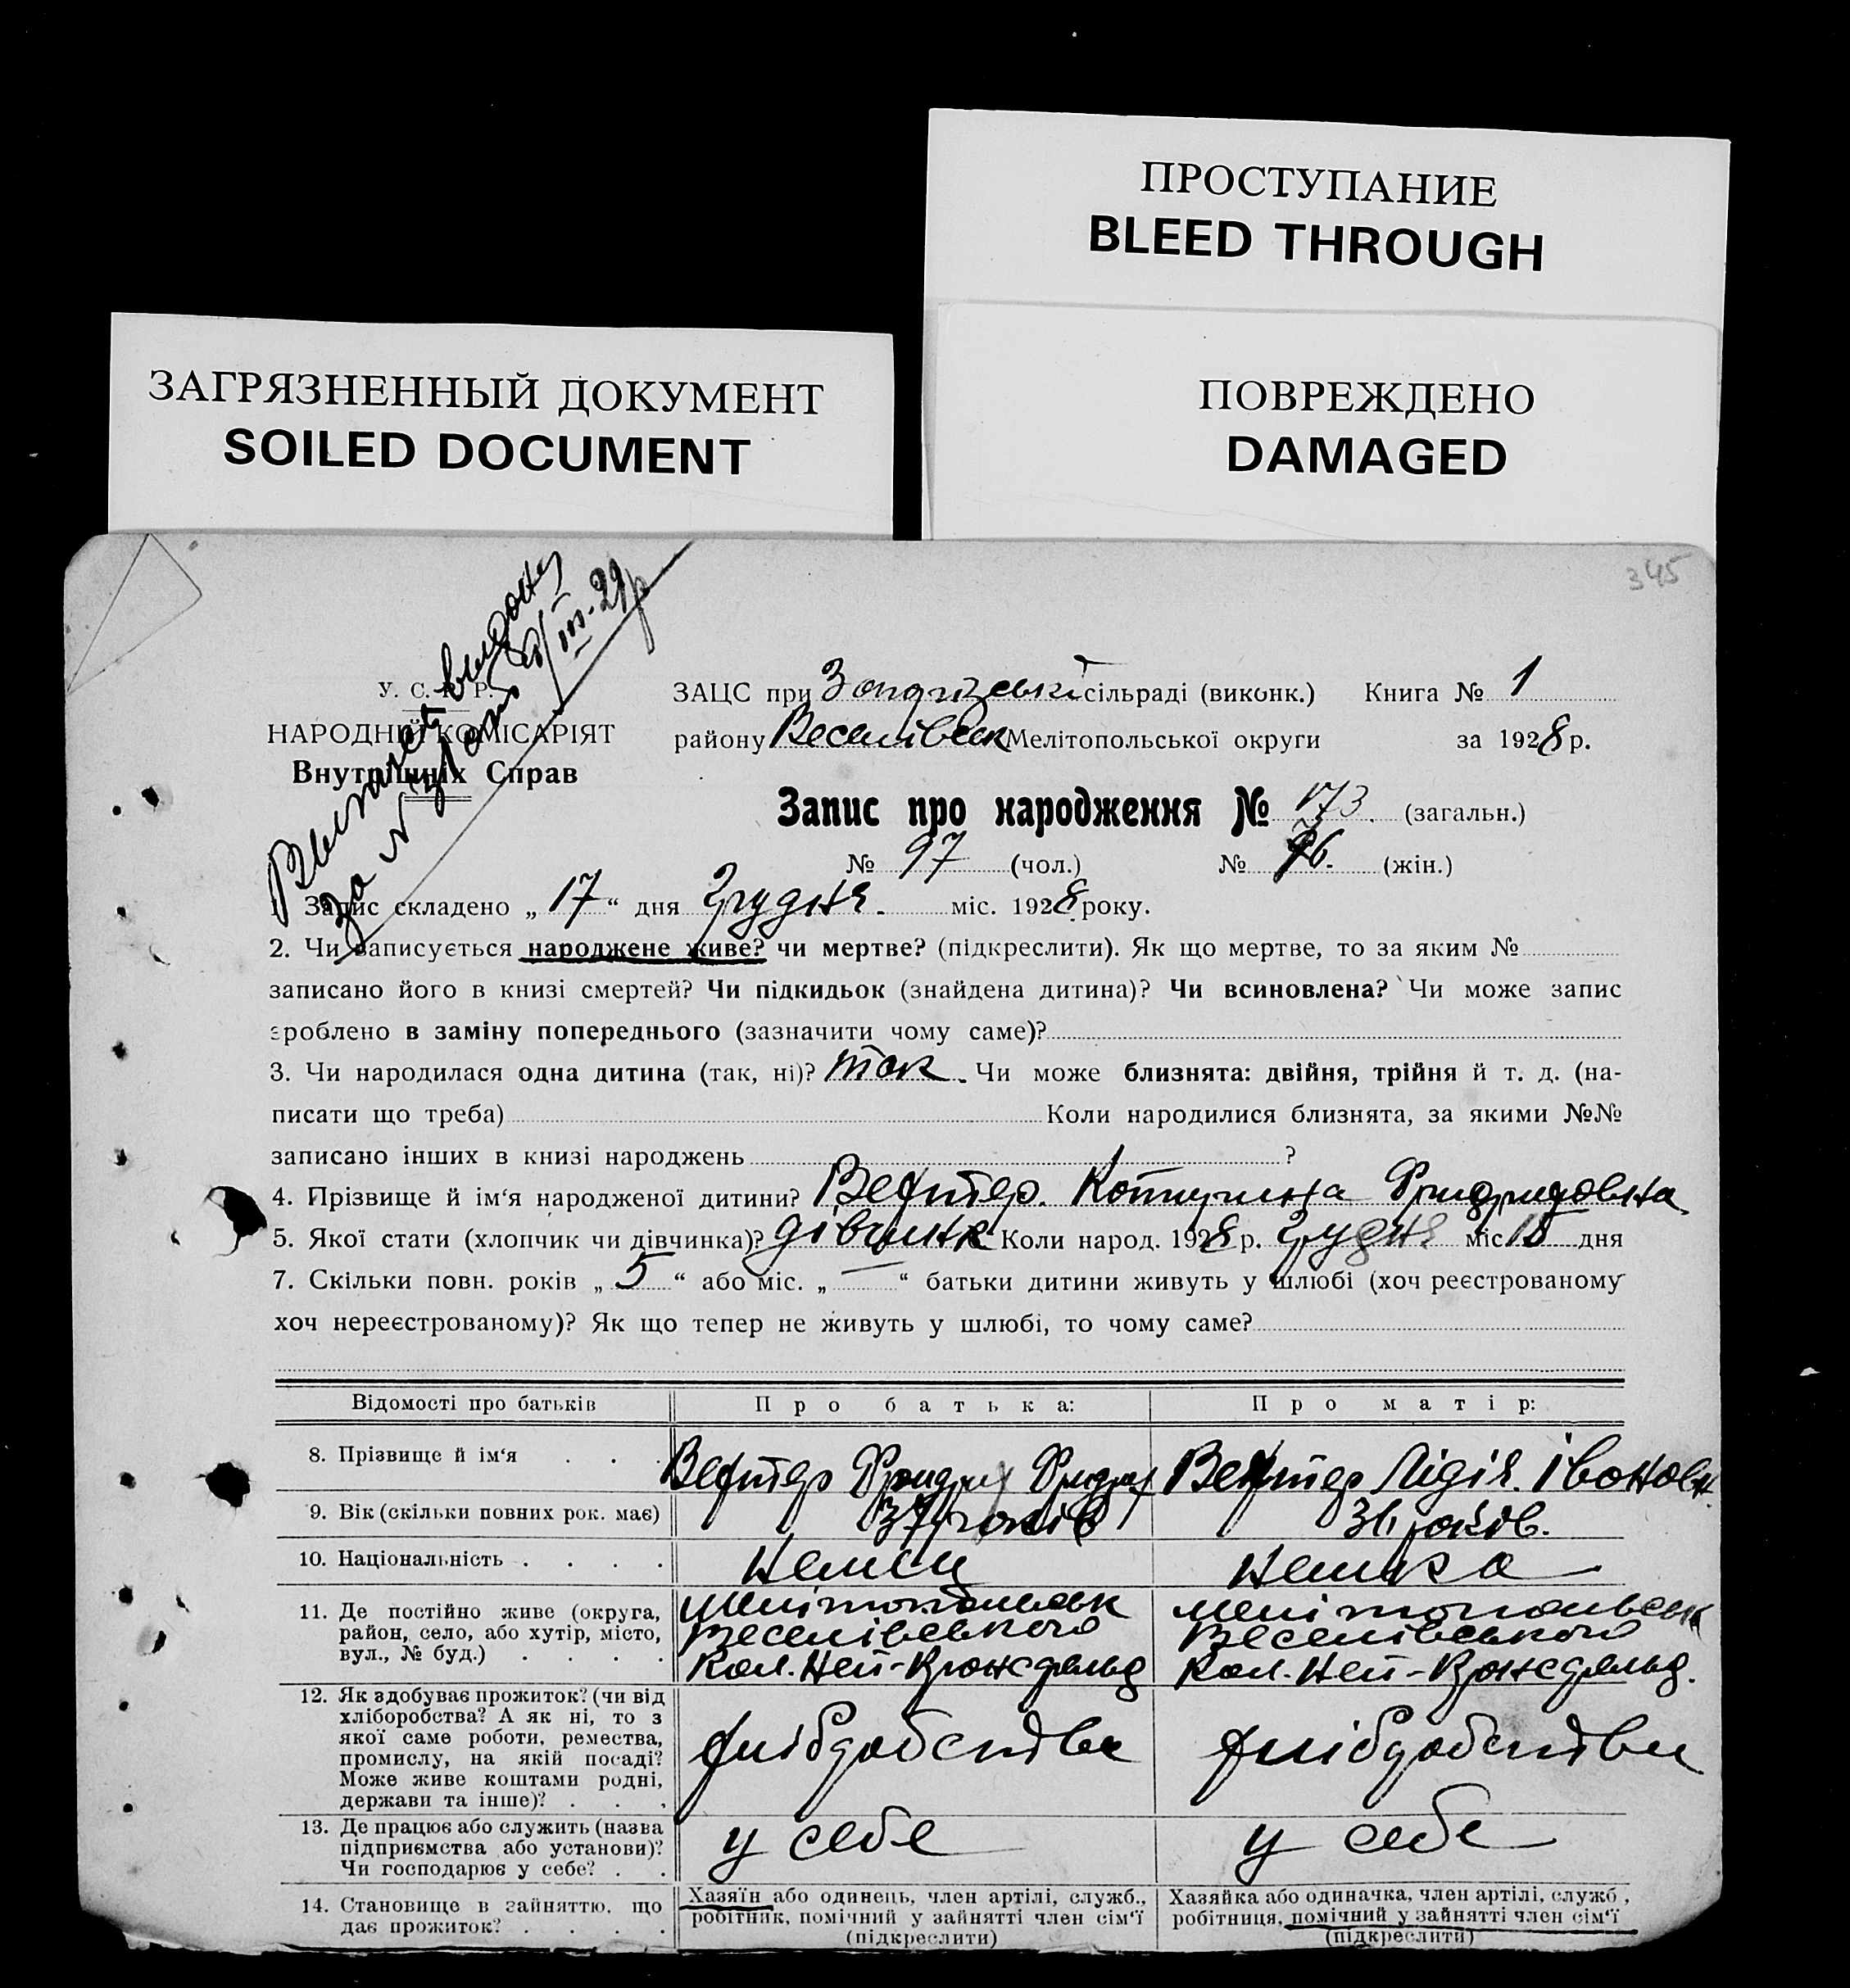 ПРОСТУПАНИЕ
BLEED THROUGH
ЗАГРЯЗНЕННЫЙ ДОКУМЕНТ
SOILED DOCUMENT
ПОВРЕЖДЕНО
DAMAGED
345
за №
III-29р
У. С. Р. Р.
НАРОДНІЙ КОМІСАРІЯТ
Внутрішніх Справ
ЗАЦС при сільраді (виконк.) Книга № 1
району Веселівськ Мелітопольської округи за 1928 р.
Запис про народження № 173. (загальн.)
№ 97 (чол.) № 76. (жін.)
1. Запис складено „ 17 “ дня Грудня. міс. 1928 року.
2. Чи записується народжене живе? чи мертве? (підкреслити). Як що мертве, то за яким №
записано його в книзі смертей? Чи підкидьок (знайдена дитина)? Чи всиновлена? Чи може запис
зроблено в заміну попереднього (зазначити чому саме)?
3. Чи народилася одна дитина (так, ні)? так. Чи може близнята: двійня, трійня й т. д. (на-
писати що треба) Коли народилися близнята, за якими №№
записано інших в книзі народжень ?
4. Прізвище й ім‘я народженої дитини? Вехтер. Фридриховна
5. Якої стати (хлопчик чи дівчинка)? дівчинка Коли народ. 1928 р. Грудня міс. 15 дня
7. Скільки повн. років „ 5 “ або міс. „ — “ батьки дитини живуть у шлюбі (хоч реєстрованому
хоч нереєстрованому)? Як що тепер не живуть у шлюбі, то чому саме?
Відомості про батьків Про батька: Про матір:
8. Прізвище й ім‘я . . . Вехтер Фридрих Фридрих Вехтер Лідія. Івановн.
9. Вік (скільки повних рок. має) 37 років 31 років.
10. Національність . . . . Немец Немка
11. Де постійно живе (округа, Мелітопольськ Мелітопольськ
район, село, або хутір, місто, Веселівського Веселівського
вул., № буд.) . . . . Кол. Ней-Кронсфельд Кол. Ней-Кронсфельд.
12. Як здобуває прожиток? (чи від
хліборобства? А як ні, то з
якої саме роботи, ремества, хліборобства хліборобства
промислу, на якій посаді?
Може живе коштами родні,
держави та інше)? . . .
13. Де працює або служить (назва
підприємства або установи)? у себе у себе
Чи господарює у себе? . .
14. Становище в зайняттю, що Хазяїн або одинець, член артілі, служб., Хазяйка або одиначка, член артілі, служб.,
дає прожиток? . . . . робітник, помічний у зайнятті член сім‘ї робітниця, помічний у зайнятті член сім‘ї
(підкреслити) (підкреслити)